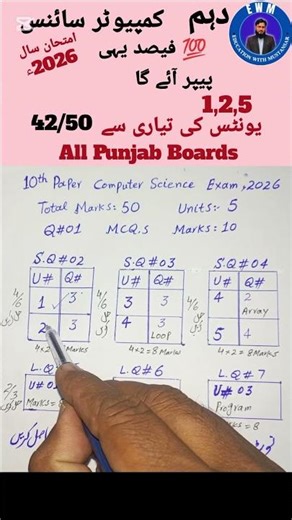 EWM
EDUCATION WITH MUSTANSAR
دہم کمپیوٹر سائنس
امتحان سال 2026ء
💯 فیصد یہی
پیپر آئے گا
1,2,5
یونٹس کی تیاری سے 42/50
All Punjab Boards
10th Paper Computer Science Exam, 2026
Total Marks: 50 Units: 5
Q#01 MCQ.S Marks: 10
S.Q#02 S.Q#03 S.Q#04
U# Q# U# Q# U# Q#
4/6 1 3 4/6 3 3 4/6 4 2 Array
2 3 4 3 Loop 5 4
4×2=8 Marks 4×2=8 Marks 4×2=8 Marks
L.Q# 6 L.Q# 7
2/3 U# 0 U# 03
Marks = Program
= 8